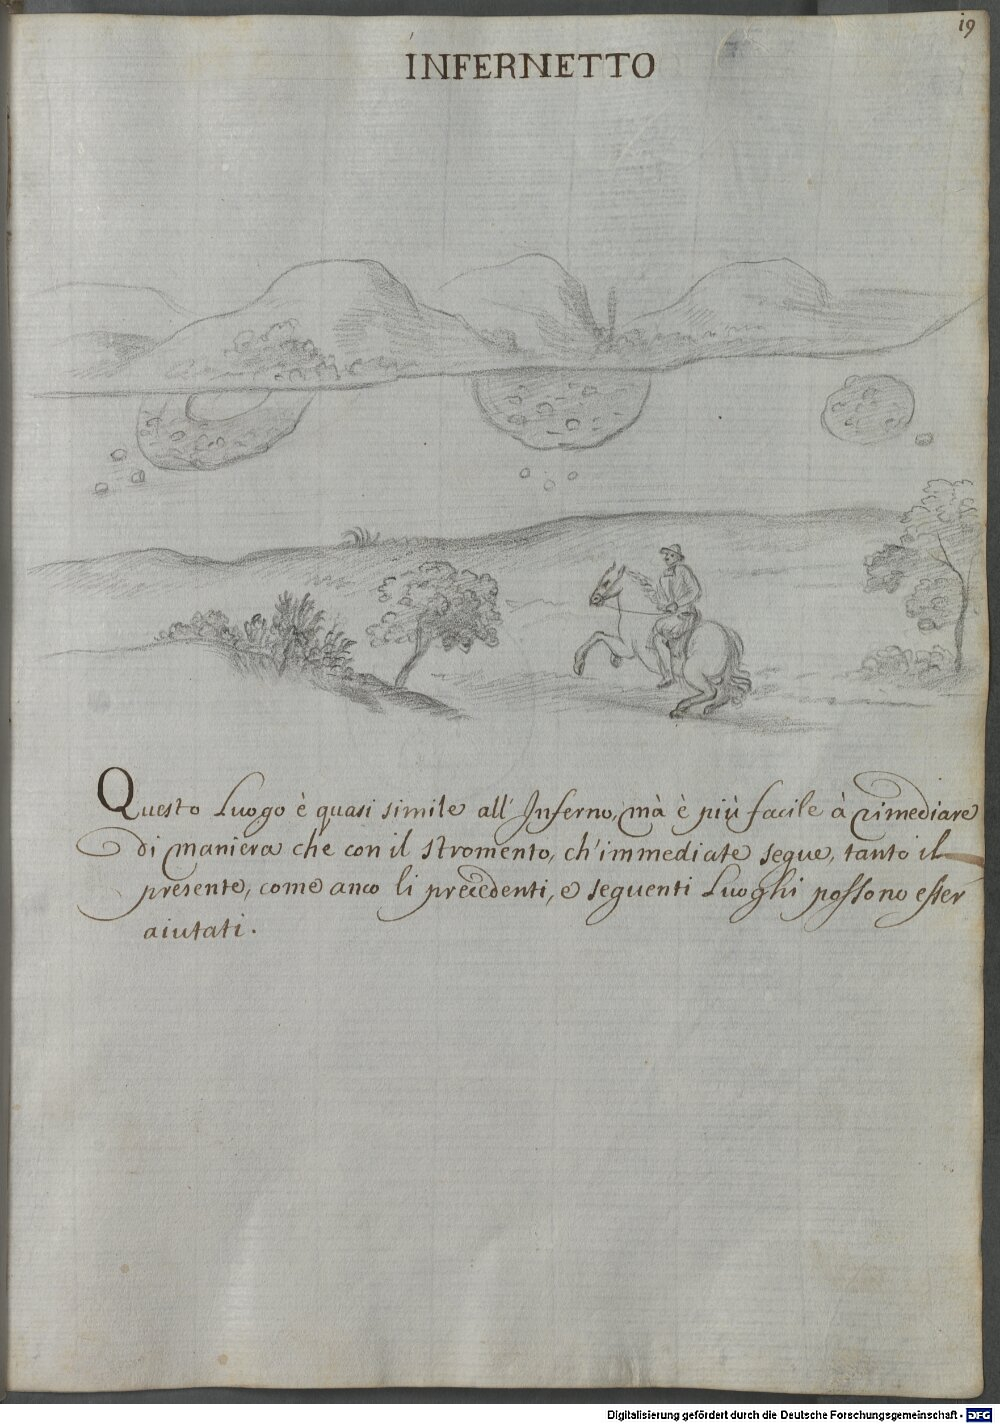 19
INFERNETTO
Questo Luogo è quasi simile all' Inferno, mà è più facile à rimediare
di maniera che con il stromento, ch'immediate segue, tanto il
presente, come anco li precedenti, e seguenti Luoghi possono esser
aiutati.
Digitalisierung gefördert durch die Deutsche Forschungsgemeinschaft - DFG